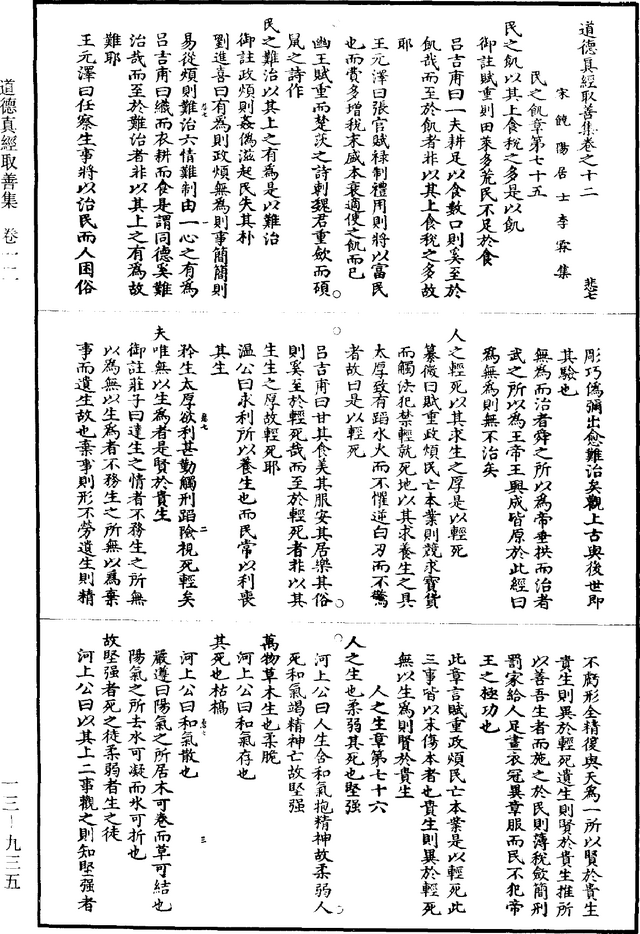 道德真經取善集卷之十二
悲七
宋饒陽居士李霖集
民之飢章第七十五
民之飢以其上食稅之多是以飢
御註賦重則田萊多荒民不足於食
呂吉甫曰一夫耕足以食數口則奚至於
飢哉而至於飢者非以其上食稅之多故
耶
王元澤曰張官賦祿制禮用則將以富民
也而賞多增稅末盛本衰適使之飢而已
幽王賦重而楚茨之詩刺魏君重斂而碩
鼠之詩作
民之難治以其上之有為是以難治
御註政煩則姦偽滋起民失其朴
劉進喜曰有為則政煩無為則事簡簡則
易從煩則難治六情難制由一心之有為
呂吉甫曰織而衣耕而食是謂同德奚難
治哉而至於難治者非以其上之有為故
難耶
王元澤曰任察生事將以治民而人困俗
彫巧偽彌出愈難治矣觀上古與後世即
其驗也
無為而治者舜之所以為帝垂拱而治者
武之所以為王帝王興成皆原於此經曰
為無為則無不治矣
人之輕死以其求生之厚是以輕死
纂微曰賦重政煩民亡本業則競求寶貨
而觸法犯禁輕就死地以其求養生之具
太厚致有蹈水火而不懼逆白刃而不驚
者故曰是以輕死
呂吉甫曰甘其食美其服安其居樂其俗
則奚至於輕死哉而至於輕死者非以其
生生之厚故輕死耶
溫公曰求利所以養生也而民常以利喪
其生
矜生太厚欲利甚勤觸刑蹈險視死輕矣
夫唯無以生為者是賢於貴生
御註莊子曰達生之情者不務生之所無
以為無以生為者不務生之所無以為棄
事而遺生故也棄事則形不勞遺生則精
不虧形全精復與天為一所以賢於貴生
貴生則異於輕死遺生則賢於貴生推所
以善吾生者而施之於民則薄稅斂簡刑
罰家給人足畫衣冠異章服而民不犯帝
王之極功也
此章言賦重政煩民亡本業是以輕死此
三事皆以末傷本者也貴生則異於輕死
無以生為則賢於貴生
人之生章第七十六
人之生也柔弱其死也堅强
河上公曰人生含和氣抱精神故柔弱人
死和氣竭精神亡故堅强
萬物草木生也柔脆
河上公曰和氣存也
其死也枯槁
河上公曰和氣散也
嚴遵曰陽氣之所居木可卷而草可結也
陽氣之所去水可凝而冰可折也
故堅强者死之徒柔弱者生之徒
河上公曰以其上二事觀之則知堅强者
道德真經取善集 卷一二
一三—九三五